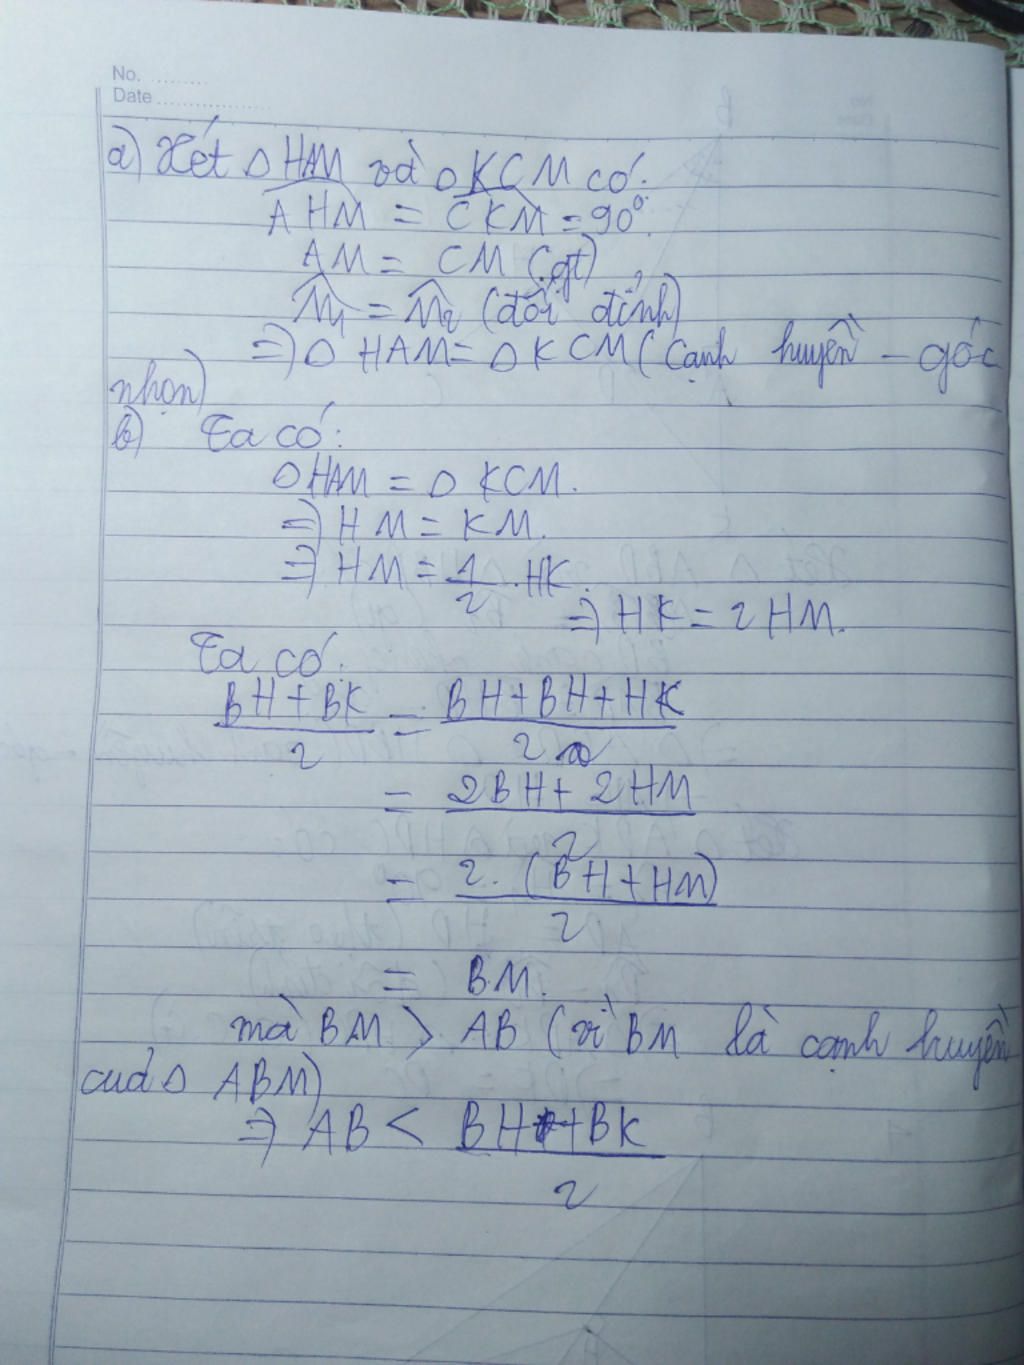 No. ........
Date ..................
a) Xét Δ HAM và Δ KCM có:
AHM = CKM = 90°.
AM = CM (gt)
M̂₁ = M̂₂ (đối đỉnh)
⇒ Δ HAM = Δ KCM ( Cạnh huyền - góc
nhọn)
b) Ta có:
Δ HAM = Δ KCM.
⇒ HM = KM.
⇒ HM = 1/2 . HK.
⇒ HK = 2 HM.
Ta có:
BH + BK / 2 = BH + BH + HK / 2
= 2BH + 2HM / 2
= 2. (BH + HM) / 2
= BM.
mà BM > AB (vì BM là cạnh huyền
cuả Δ ABM)
⇒ AB < BH + BK / 2